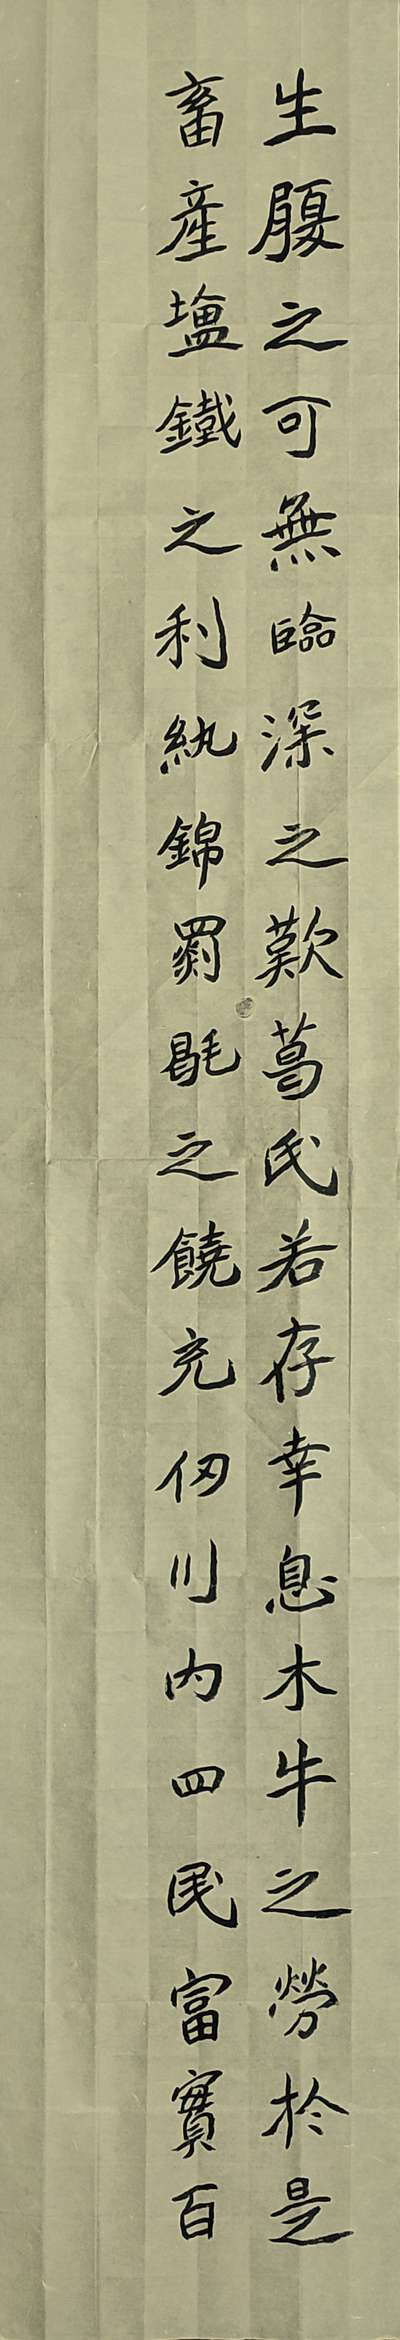 生履之可無臨深之歎葛氏若存幸息木牛之勞於是
畜産塩鐵之利紈錦罽毼之饒充仞川内四民富實百